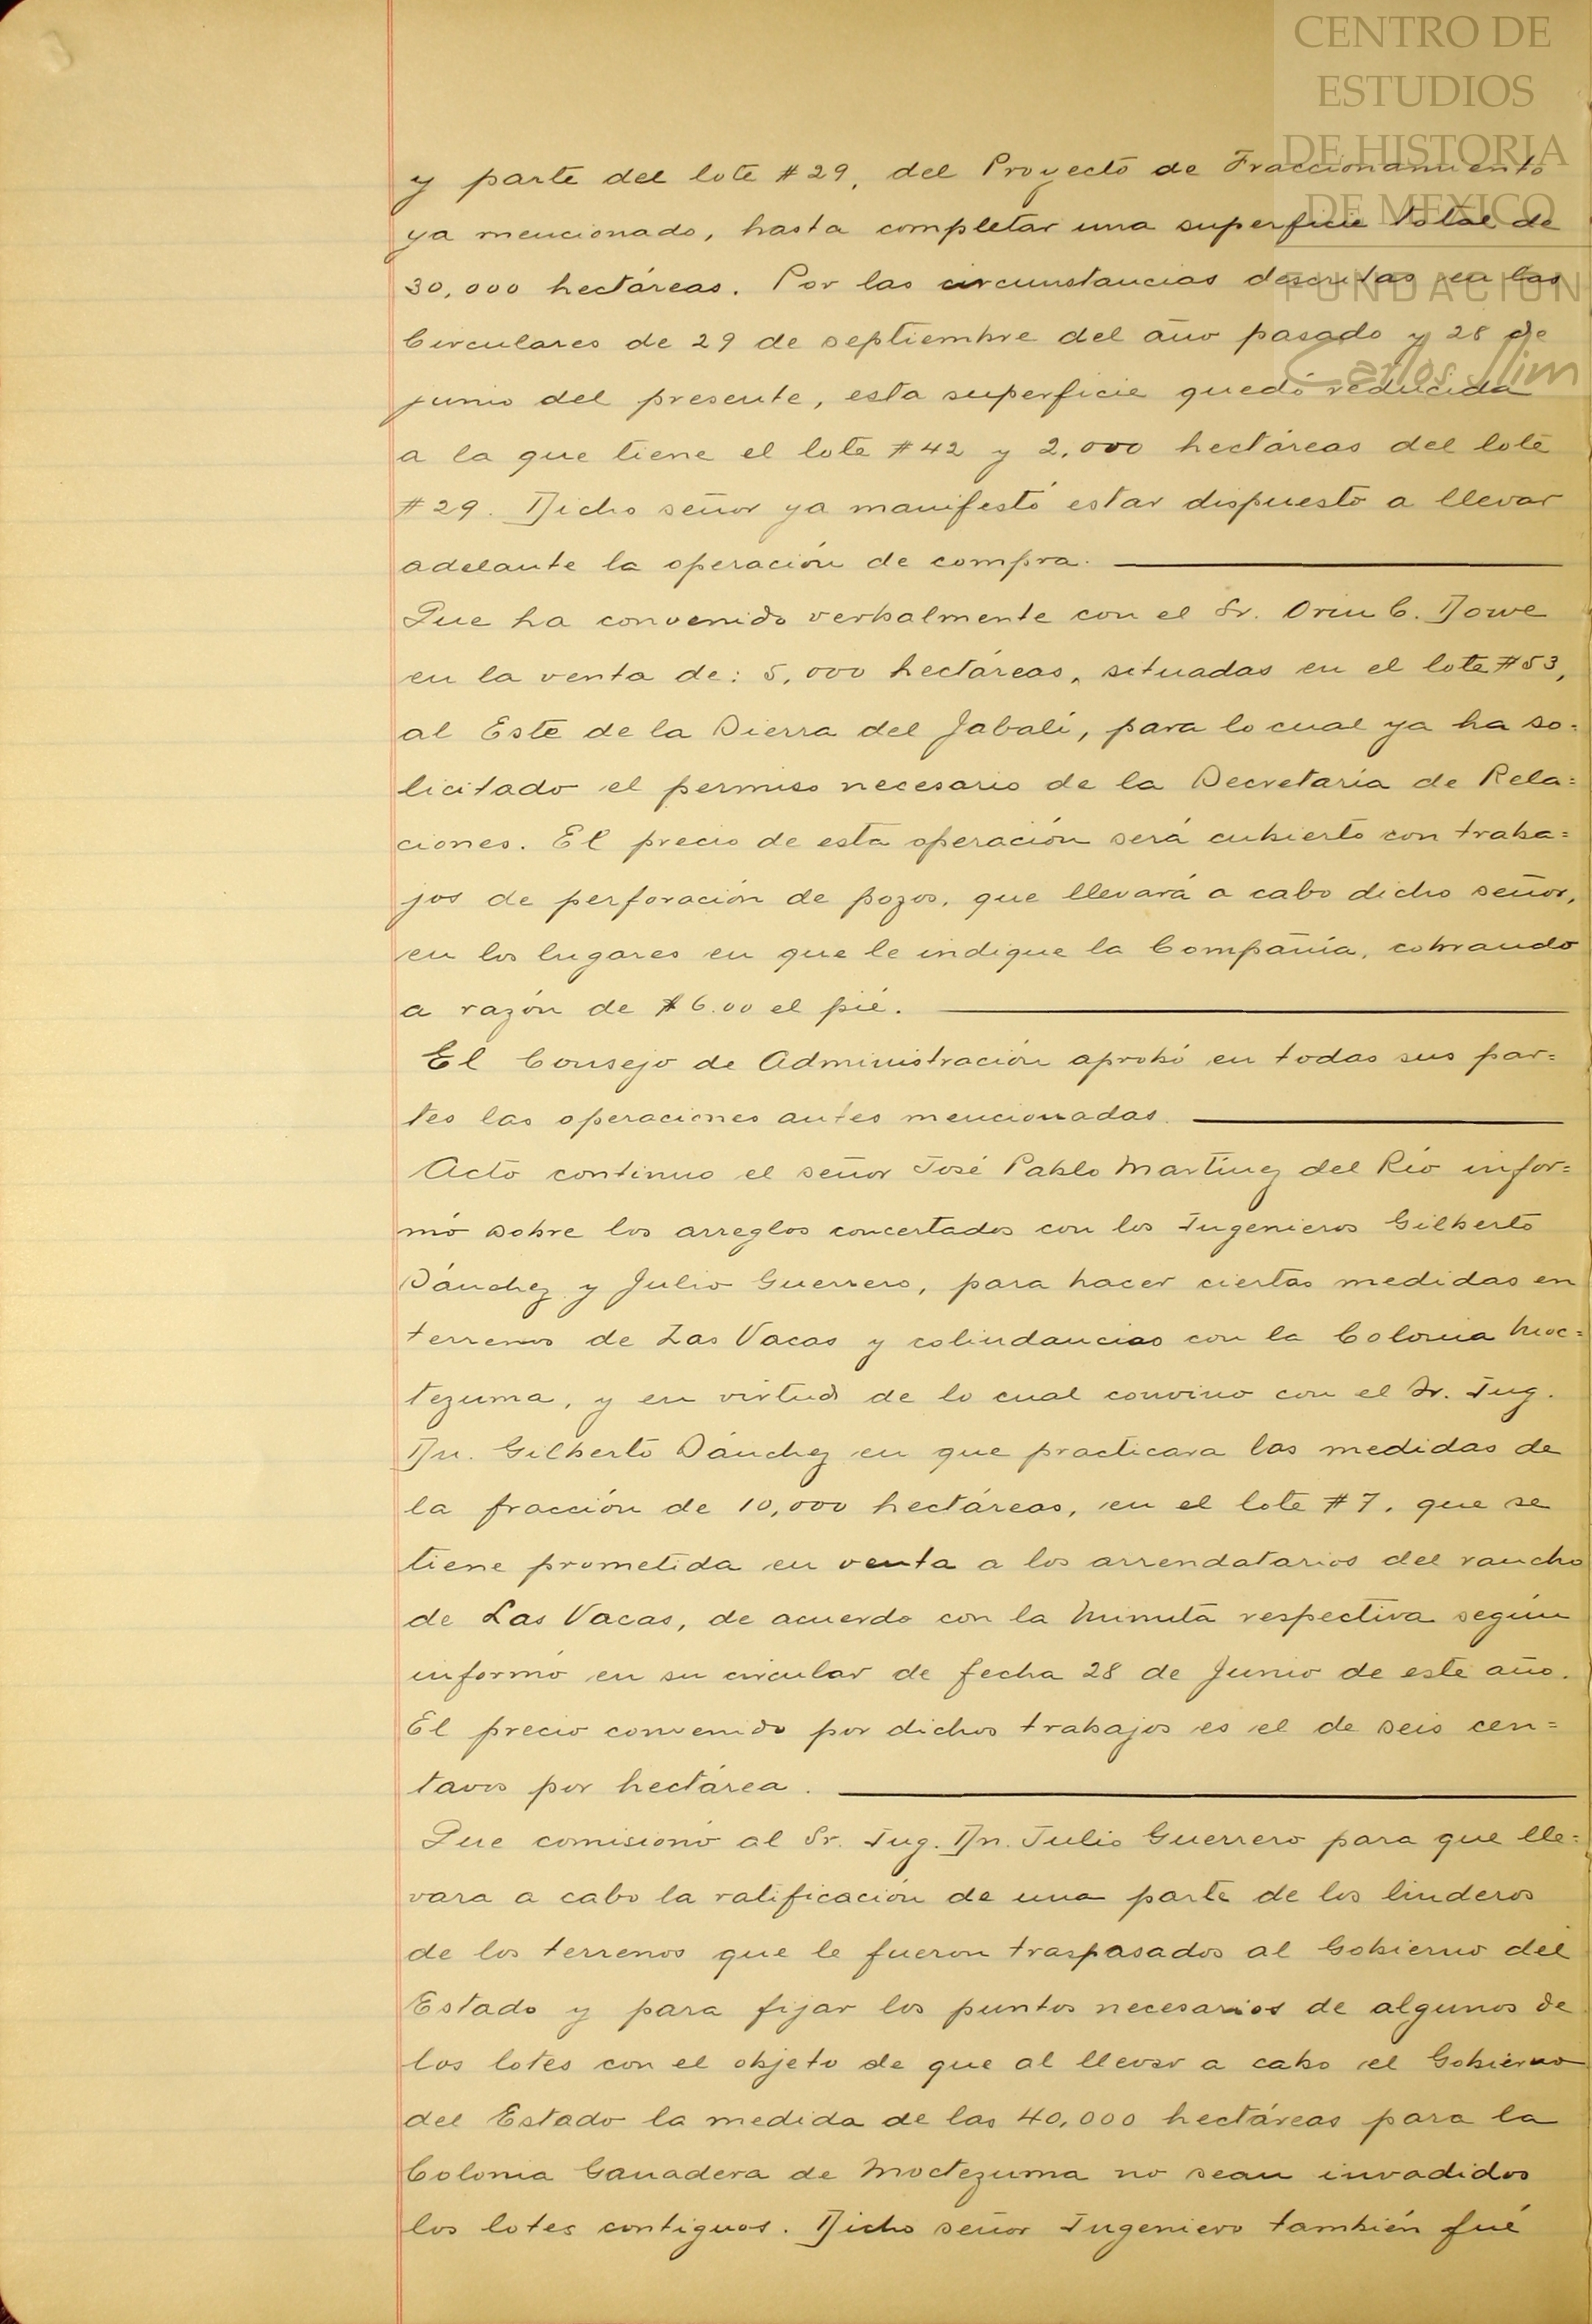 CENTRO DE
ESTUDIOS
DE HISTORIA
DE MEXICO
FUNDACION
Carlos Slim
y parte del lote #29, del Proyecto de Fraccionamiento
ya mencionado, hasta completar una superficie total de
30,000 hectáreas. Por las circunstancias descritas en las
Circulares de 29 de septiembre del año pasado y 28 de
junio del presente, esta superficie quedó reducida
a la que tiene el lote #42 y 2,000 hectáreas del lote
#29. Dicho señor ya manifestó estar dispuesto a llevar
adelante la operación de compra.
Que ha convenido verbalmente con el Sr. Orin C. Dowe
en la venta de: 5,000 hectáreas, situadas en el lote #53,
al Este de la Sierra del Jabalí, para lo cual ya ha so=
licitado el permiso necesario de la Secretaría de Rela=
ciones. El precio de esta operación será cubierto con traba=
jos de perforación de pozos, que llevará a cabo dicho señor,
en los lugares en que le indique la Compañía, cobrando
a razón de $6.00 el pié.
El Consejo de Administración aprobó en todas sus par=
tes las operaciones antes mencionadas.
Acto continuo el señor José Pablo Martínez del Río infor=
mó sobre los arreglos concertados con los Ingenieros Gilberto
Sánchez y Julio Guerrero, para hacer ciertas medidas en
terrenos de Las Vacas y colindancias con la Colonia Moc=
tezuma, y en virtud de lo cual convino con el Sr. Ing.
Dn. Gilberto Sánchez en que practicara las medidas de
la fracción de 10,000 hectáreas, en el lote #7, que se
tiene prometida en venta a los arrendatarios del rancho
de Las Vacas, de acuerdo con la Minuta respectiva según
informó en su circular de fecha 28 de Junio de este año.
El precio convenido por dichos trabajos es el de seis cen=
tavos por hectárea.
Que comisionó al Sr. Ing. Dn. Julio Guerrero para que lle=
vara a cabo la ratificación de una parte de los linderos
de los terrenos que le fueron traspasados al Gobierno del
Estado y para fijar los puntos necesarios de algunos de
los lotes con el objeto de que al llevar a cabo el Gobierno
del Estado la medida de las 40,000 hectáreas para la
Colonia Ganadera de Moctezuma no sean invadidos
los lotes contiguos. Dicho señor Ingeniero también fué